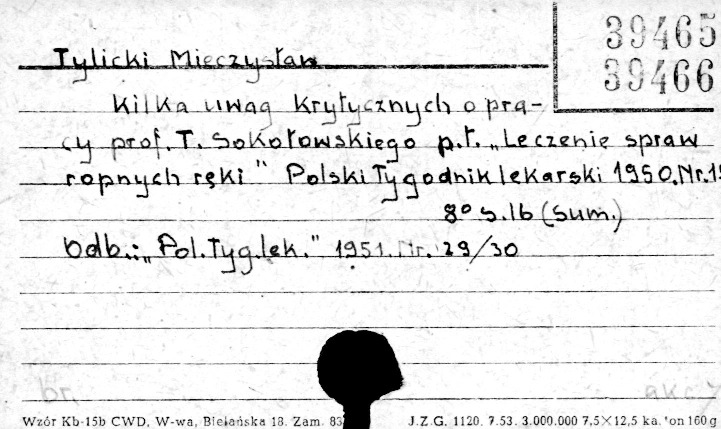 39465
39466
Tylicki Mieczysław
Kilka uwag krytycznych o pra-
cy prof. T. Sokołowskiego p.t. „Leczenie spraw
ropnych ręki" Polski Tygodnik lekarski 1950. Nr.
8° s. lb (sum.)
Odb.: „Pol. Tyg. lek." 1951. Nr. 29/30
br. akc.
Wzór Kb-15b CWD, W-wa, Bielańska 18. Zam. J.Z.G. 1120. 7.53. 3.000.000 7,5×12,5 160 g